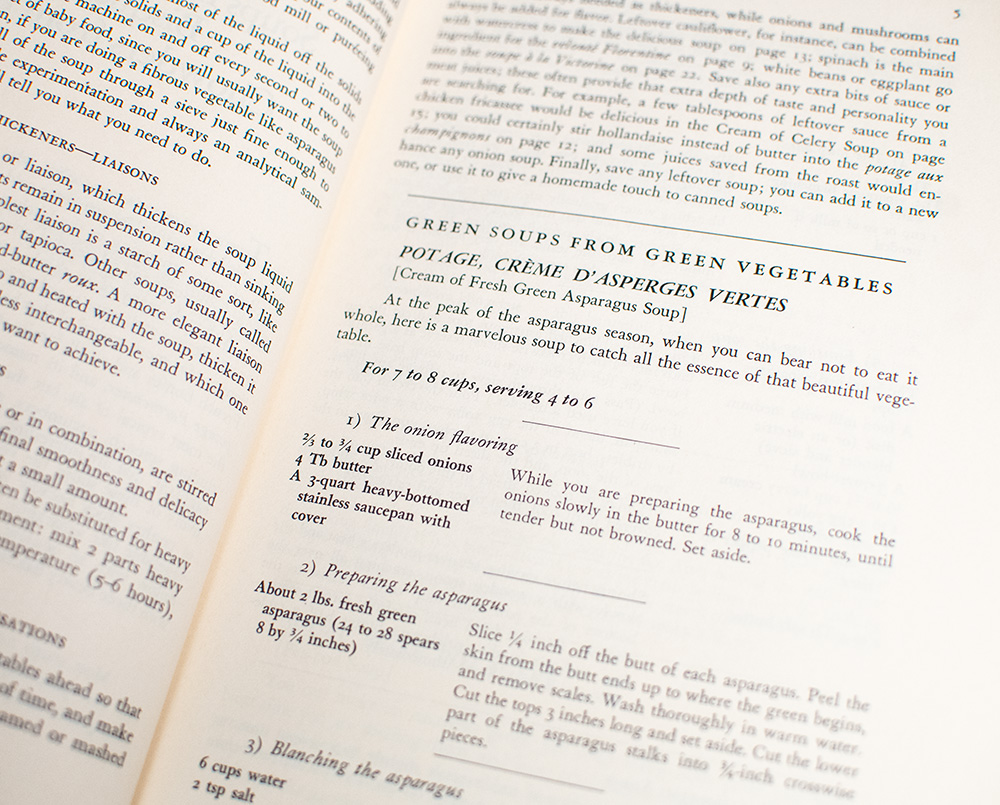 most of the liquid off the solids
solids and a cup of the liquid into the
machine on and off every second or two to
t of baby food, since you will usually want the soup
n, if you are doing a fibrous vegetable like asparagus
ll of the soup through a sieve just fine enough to
experimentation and always an analytical sam-
l tell you what you need to do.
HICKENERS—LIAISONS
or liaison, which thickens the soup liquid
ts remain in suspension rather than sinking
plest liaison is a starch of some sort, like
or tapioca. Other soups, usually called
d-butter roux. A more elegant liaison
o and heated with the soup, thicken it
less interchangeable, and which one
want to achieve.
or in combination, are stirred
final smoothness and delicacy
t a small amount.
en be substituted for heavy
ment: mix 2 parts heavy
mperature (5-6 hours),
SATIONS
tables ahead so that
of time, and make
amed or mashed
5
needed as thickeners, while onions and mushrooms can
always be added for flavor. Leftover cauliflower, for instance, can be combined
with watercress to make the delicious soup on page 13; spinach is the main
ingredient for the Florentine on page 9; white beans or eggplant go
into the soupe à la Victorine on page 22. Save also any extra bits of sauce or
meat juices; these often provide that extra depth of taste and personality you
are searching for. For example, a few tablespoons of leftover sauce from a
chicken fricassee would be delicious in the Cream of Celery Soup on page
15; you could certainly stir hollandaise instead of butter into the potage aux
champignons on page 12; and some juices saved from the roast would en-
hance any onion soup. Finally, save any leftover soup; you can add it to a new
one, or use it to give a homemade touch to canned soups.
GREEN SOUPS FROM GREEN VEGETABLES
POTAGE, CRÈME D'ASPERGES VERTES
[Cream of Fresh Green Asparagus Soup]
At the peak of the asparagus season, when you can bear not to eat it
whole, here is a marvelous soup to catch all the essence of that beautiful vege-
table.
For 7 to 8 cups, serving 4 to 6
1) The onion flavoring
⅔ to ¾ cup sliced onions
4 Tb butter
A 3-quart heavy-bottomed
stainless saucepan with
cover
While you are preparing the asparagus, cook the
onions slowly in the butter for 8 to 10 minutes, until
tender but not browned. Set aside.
2) Preparing the asparagus
About 2 lbs. fresh green
asparagus (24 to 28 spears
8 by ¾ inches)
Slice ¼ inch off the butt of each asparagus. Peel the
skin from the butt ends up to where the green begins,
and remove scales. Wash thoroughly in warm water.
Cut the tops 3 inches long and set aside. Cut the lower
part of the asparagus stalks into ¾-inch crosswise
pieces.
3) Blanching the asparagus
6 cups water
2 tsp salt